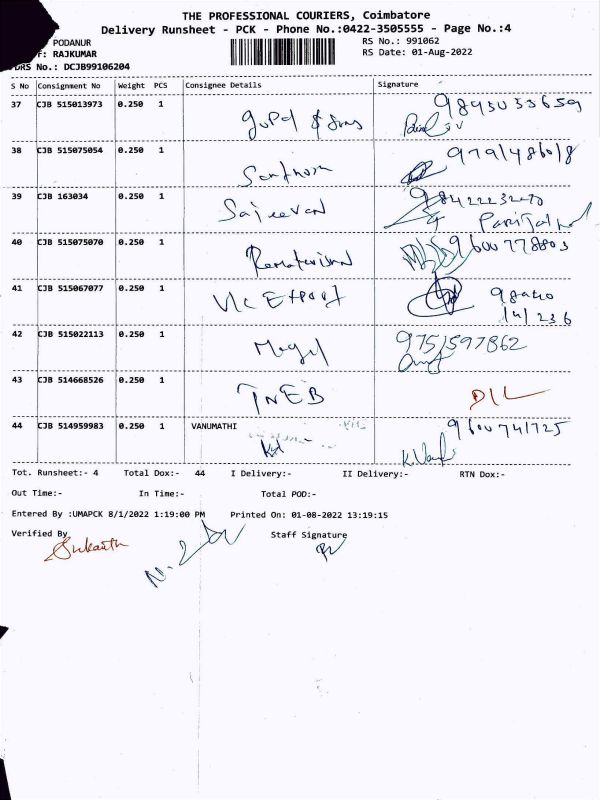 THE PROFESSIONAL COURIERS, Coimbatore
Delivery Runsheet - PCK - Phone No.:0422-3505555 - Page No.:4
PODANUR
RS No.: 991062
: RAJKUMAR
RS Date: 01-Aug-2022
DRS No.: DCJB99106204
S No Consignment No Weight PCS Consignee Details Signature
37 CJB 515013973 0.250 1
38 CJB 515075054 0.250 1 Santhosh 9791486018
39 CJB 163034 0.250 1 Sajeevan
40 CJB 515075070 0.250 1 9600778803
41 CJB 515067077 0.250 1 Vlc Export
42 CJB 515022113 0.250 1 9751597862
43 CJB 514668526 0.250 1 TNEB DIL
44 CJB 514959983 0.250 1 VANUMATHI 9600741725
Tot. Runsheet:- 4 Total Dox:- 44 I Delivery:- II Delivery:- RTN Dox:-
Out Time:- In Time:- Total POD:-
Entered By :UMAPCK 8/1/2022 1:19:00 PM Printed On: 01-08-2022 13:19:15
Verified By Staff Signature
Srikanth